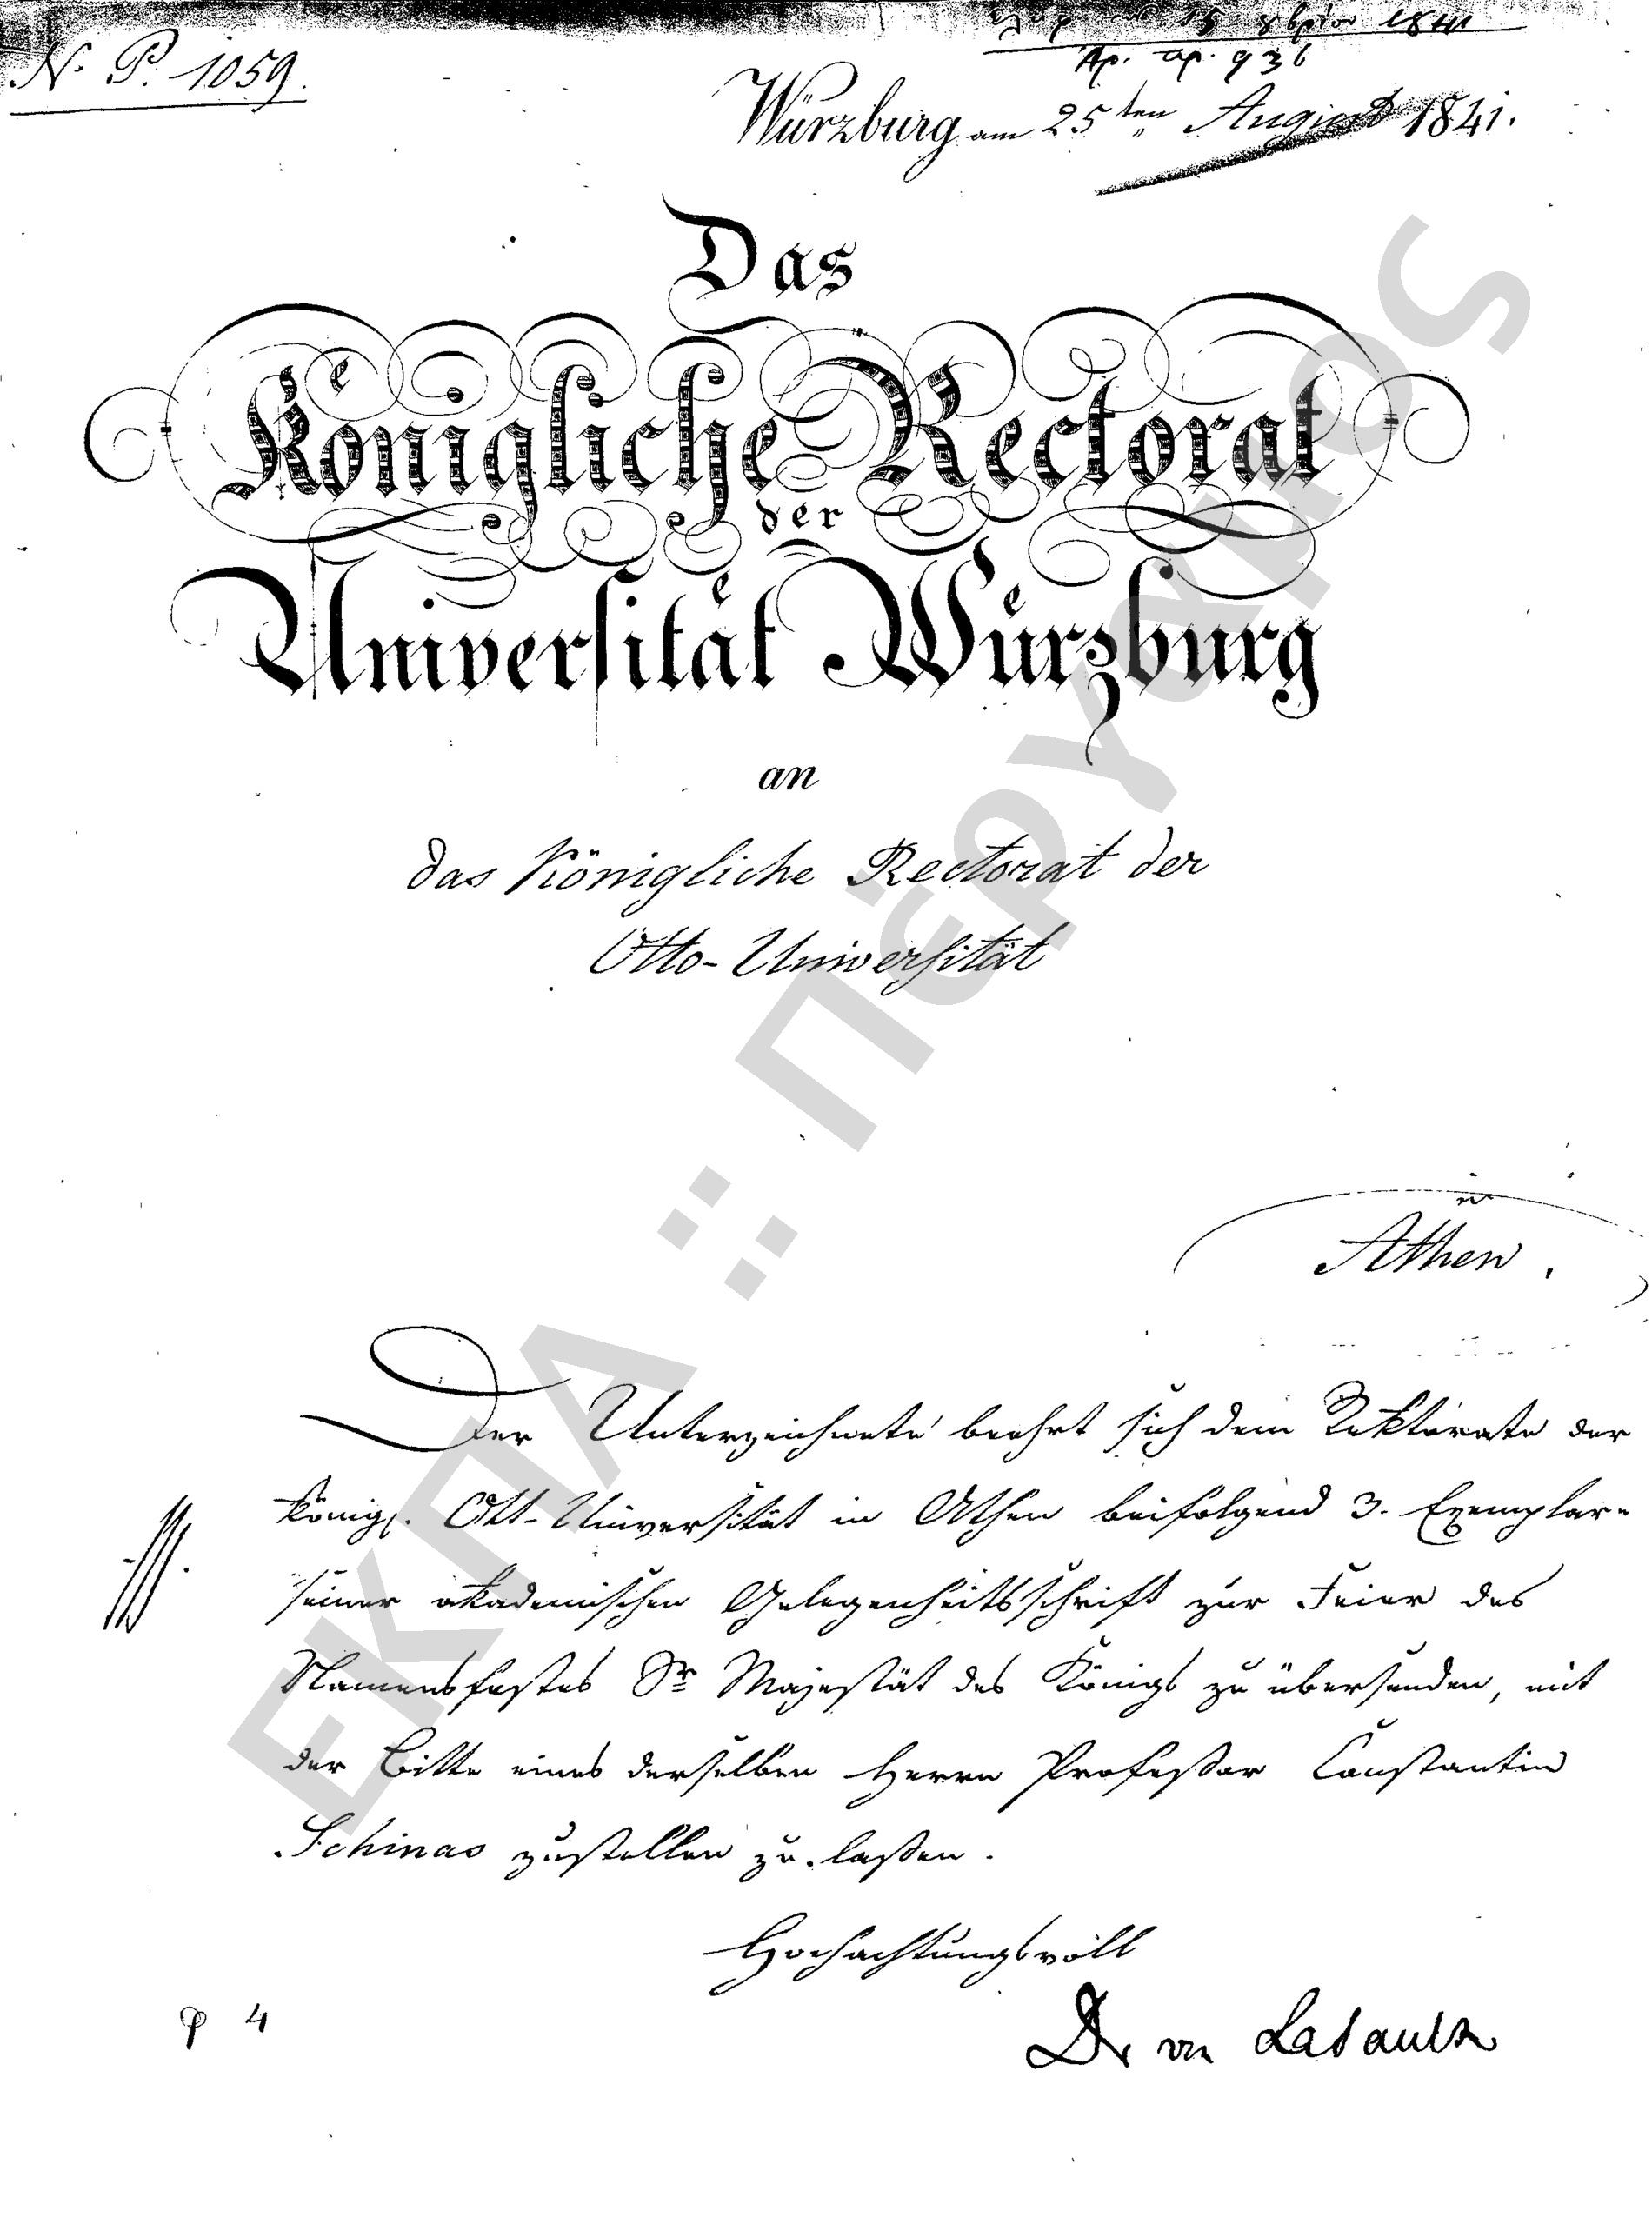 N. P. 1059.
15 1841
Αρ. πρ. 936
Würzburg am 25ten August 1841.
Das
Königliche Rectorat
der
Universität Würzburg
an
das Königliche Rectorat der
Otto-Universität
in
Athen.
Der Unterzeichnete beehrt sich dem Rektorate der
königl. Otto-Universität in Athen beifolgend 3. Exemplare
seiner akademischen Gelegenheitsschrift zur Feier des
Namensfestes Sr Majestät des Königs zu übersenden, mit
der Bitte eines derselben Herrn Professor Constantin
Schinas zustellen zu lassen.
Hochachtungsvoll
Dr von Lasaulx
4
ΕΚΠΑ :: Πέργαμος